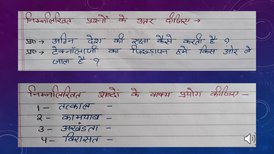 निम्नलिखित प्रश्नों के उत्तर दीजिए →
प्र०→ अग्नि देश की रक्षा कैसे करती है ?
प्र०→ टेक्नोलॉजी का पिछड़ापन हमें किस ओर ले
जाता है ?
निम्नलिखित शब्दों के वाक्य प्रयोग कीजिए−
1 − तत्काल −
2 − कामयाब −
3 − अखंडता −
4 − विरासत −